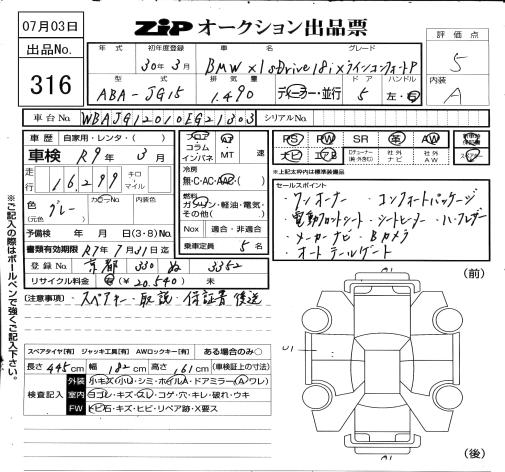 07月03日
ZIP オークション出品票
評価点
出品No.
316
年式 初年度登録 車名 グレード
30年3月 BMW X1 sDrive18i xラインコンフォートP
5
型式 排気量 ドア ハンドル
ABA-JG15 1.490 ディーラー・並行 5 左・右
内装
A
車台No. WBAJG12010EG21303 シリアルNo.
車歴 自家用・レンタ・( )
フロア コラム インパネ AT MT 速
PS PW SR 革 AW
ナビ エアB 社外ナビ 社外AW
車検 R9年 3月
冷房
無・C・AC・AAC・( )
※上記太枠内は標準装備
走行 16,299 キロ マイル
燃料
ガソリン・軽油・電気・その他( )
色 (元色) グレー カラーNo. 内装色
Nox 適合・非適合
予備検 年 月 日 (3・8)No.
乗車定員 5名
書類有効期限 R7年7月31日迄
登録No. 京都 330 ぬ 3352
リサイクル料金 (¥20.540) 未
セールスポイント
・ワンオーナー ・コンフォートパッケージ
・電動フロントシート ・シートヒーター
・メーカーナビ・Bカメラ
・オートテールゲート
(注意事項) ・スペアキー・取説・保証書後送
(前)
※ご記入の際はボールペンで強くご記入下さい。
スペアタイヤ[有] ジャッキ工具[有] AWロックキー[有] ある場合のみ○
長さ 445cm 幅 182cm 高さ 161cm (車検証上の寸法)
検査記入
外装 小キズ・小凹・シミ・ホイルA・ドアミラー(A・ワレ)
室内 ヨゴレ・キズ・スレ・コゲ・穴・キレ・破れ・ウキ
FW トビ石・キズ・ヒビ・リペア跡・X要ス
(後)